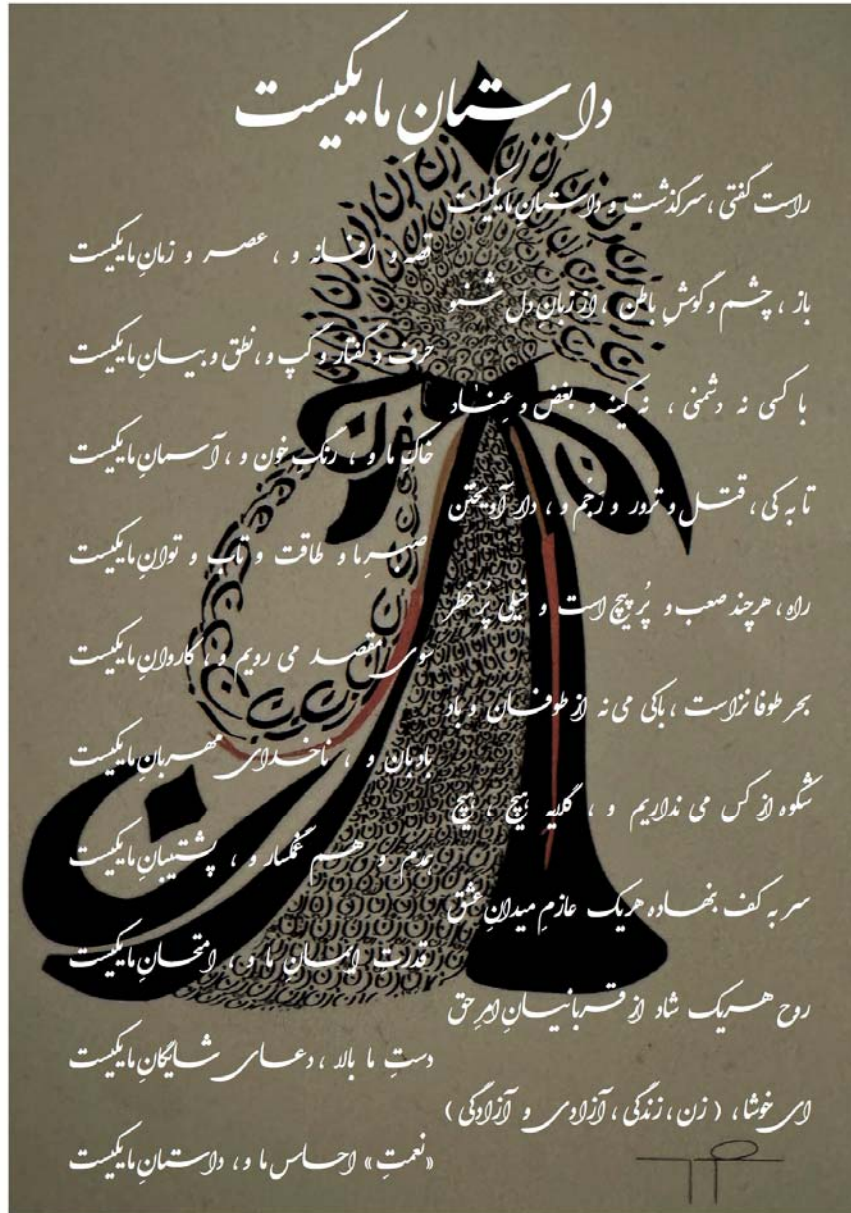 داستانِ ما یکیست
راست گفتی ، سرگذشت و داستانِ ما یکیست
قصه و افسانه و ، عصر و زمانِ ما یکیست
باز ، چشم و گوشِ باطن ، از زبانِ دل شنو
حرف و گفتار و گپ و ، نطق و بیانِ ما یکیست
با کسی نه دشمنی ، نه کینه و بغض و عِناد
خاکِ ما و ، رنگِ خون و ، آسمانِ ما یکیست
تا به کی ، قتل و ترور و رَجُم و ، دار آویختن
صبرِ ما و طاقت و تاب و توانِ ما یکیست
راه ، هرچند صعب و پُر پیچ است و خیلی پُر خطر
سوی مقصد می رویم و ، کاروانِ ما یکیست
بحر طوفانزاست ، باکی می نه از طوفان و باد
بادبان و ، ناخدای مهربانِ ما یکیست
شکوه از کس می نداریم و ، گلایه هیچ ، هیچ
همدم و هم غمگسار و ، پشتیبانِ ما یکیست
سر به کف بنهاده هریک عازمِ میدانِ عشق
قدرت ایمانِ ما و ، امتحانِ ما یکیست
روح هریک شاد از قربانیانِ امرِ حق
دستِ ما بالا ، دعای شایگانِ ما یکیست
ای خوشا ، ( زن ، زندگی ، آزادی و آزادگی )
«نعمتِ» احساس ما و ، داستانِ ما یکیست